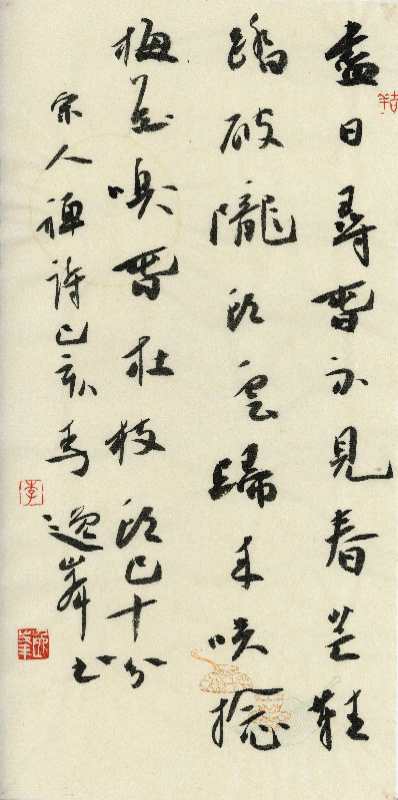 盡日尋春不見春芒鞋
踏破隴頭雲歸來咲捻
梅花嗅春在枝頭已十分
宋人禪詩己亥 逸峯书